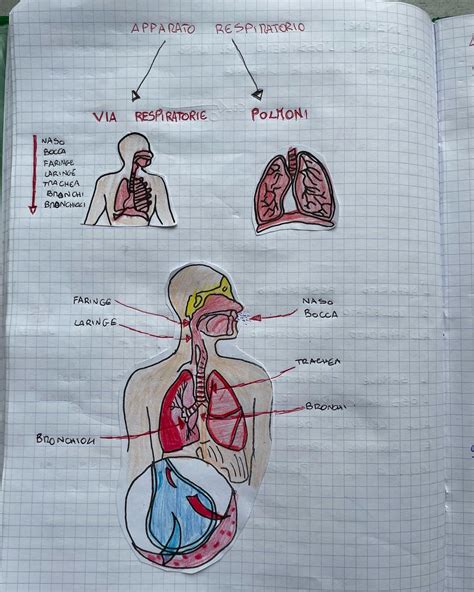 APPARATO RESPIRATORIO
VIA RESPIRATORIE
POLMONI
NASO
BOCCA
FARINGE
LARINGE
TRACHEA
BRONCHI
BRONCHIOLI
FARINGE
LARINGE
NASO
BOCCA
TRACHEA
BRONCHI
BRONCHIOLI